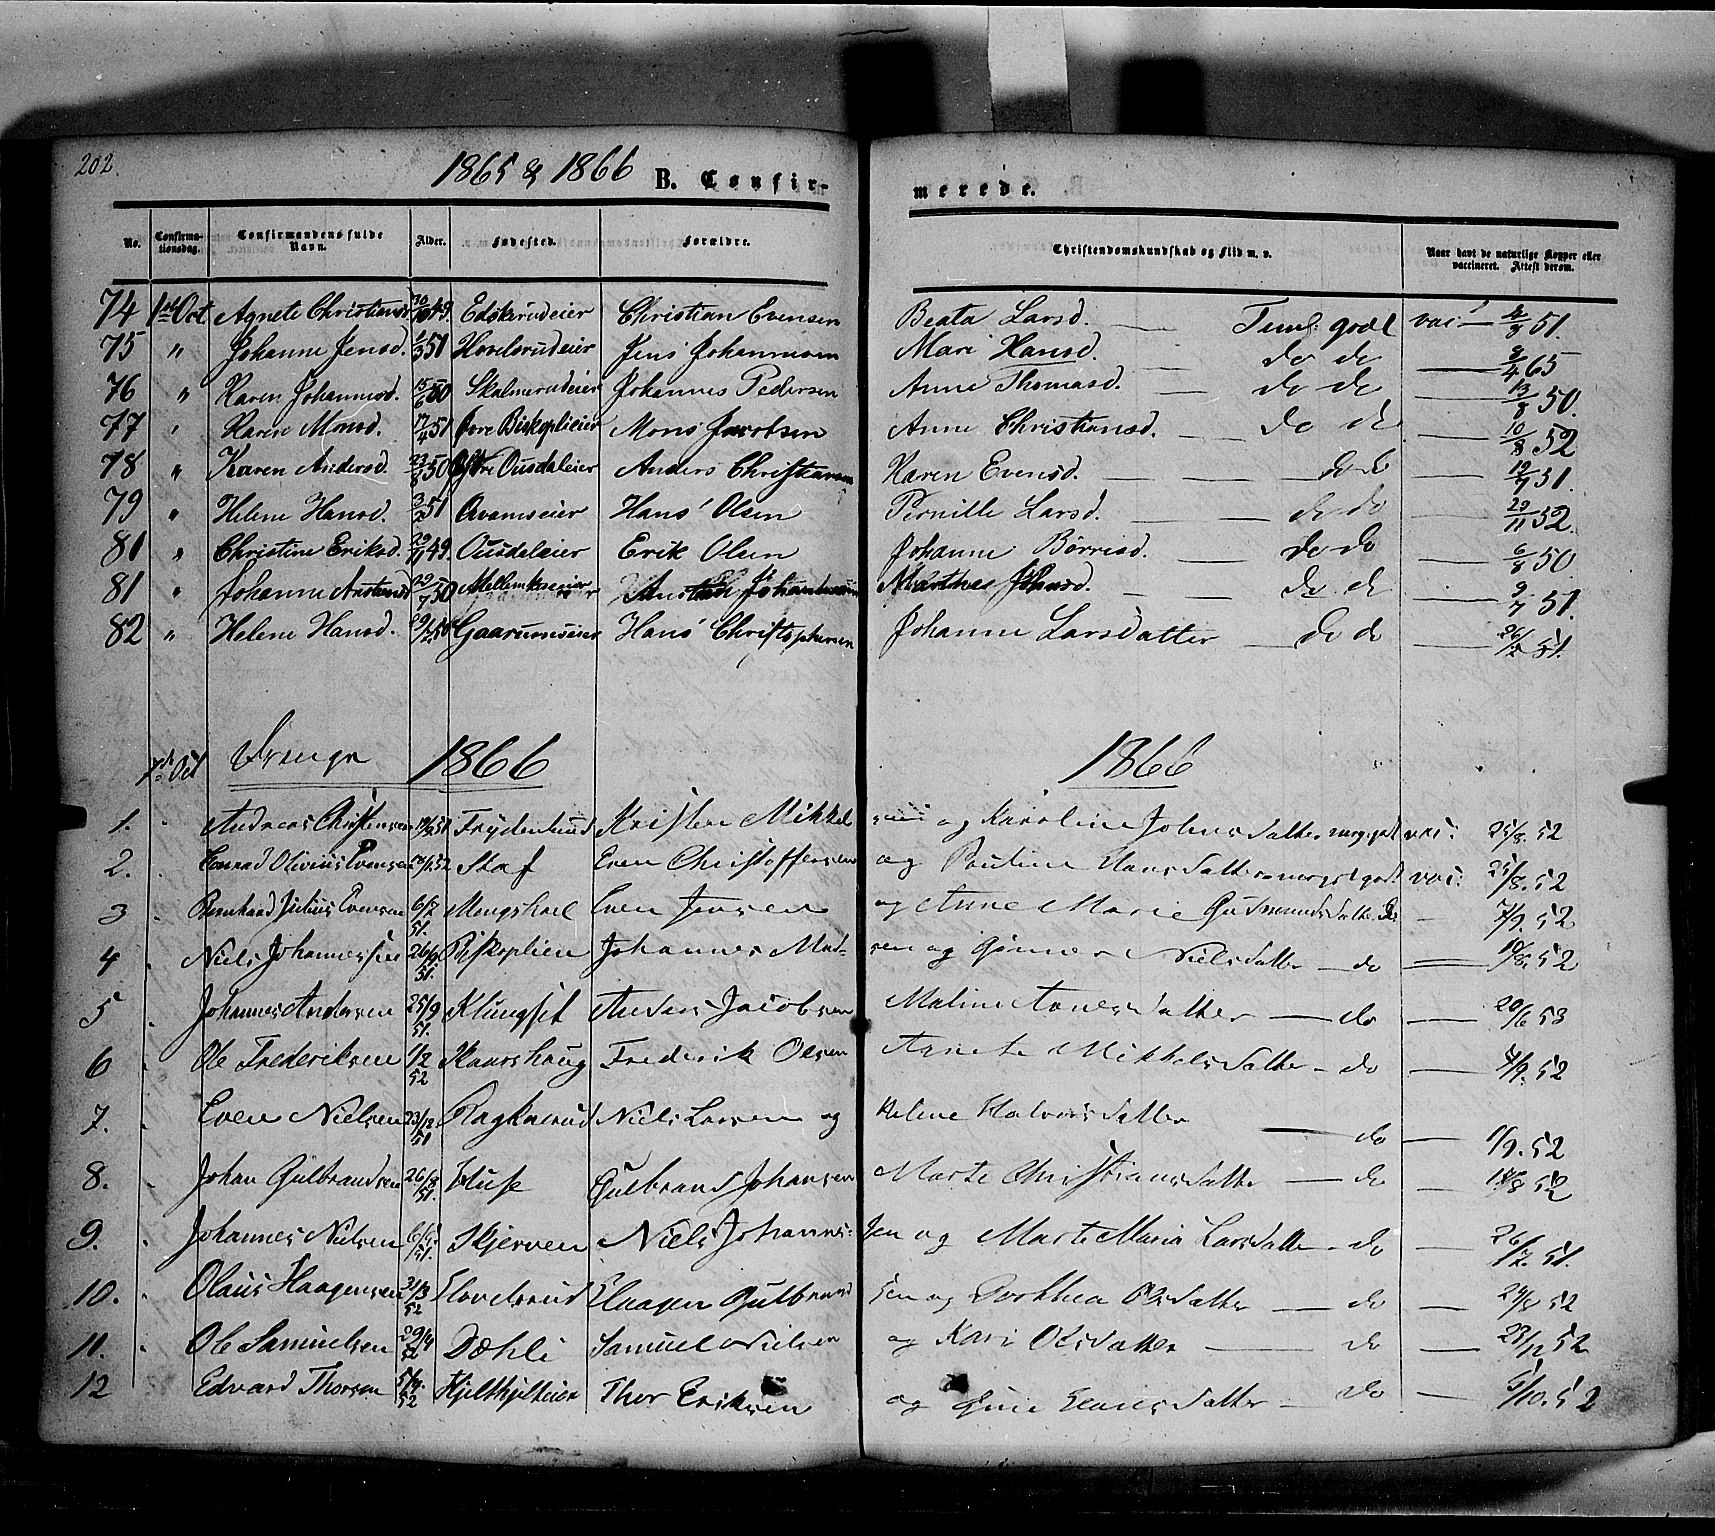 202.
1865 & 1866 B. Confir- merede.
No. Confirmationsdag. Confirmandens fulde Navn. Alder. Fødested. Forældre. Christendomskundskab og Flid m. v. Naar havt de naturlige Kopper eller vaccineret. Attest derom.
74 1ste Oct Agnete Christiansd 49. Edskerudeier Christian Evensen Beata Larsd. — Temlg godt vac — 51.
75 " Johanne Jensd. 51 Hovelsrudeier Jens Johannesen Mari Hansd. — do do — 8/4 65
76 " Karen Johannesd. 15/6 50 Skalmerudeier Johannes Pedersen Anne Thomasd. — do do — 13/8 50.
77 " Karen Monsd. 17/4 51 Øvre Biskoplieier Mons Jacobsen Anne Christiansd. — do do — 10/8 52
78 " Karen Andersd. 23/8 50 Østre Ousdaleier Anders Christiansen Karen Evensd. — do do — 51.
79 " Helene Hansd. 3/2 51 Qvamseier Hans Olsen Pernille Larsd. — do do — 20/11 52.
81 " Christine Eriksd. 29/11 49. Ousdaleier Erik Olsen Johanne Børresd. — do do — 6/8 50
81 " Johanne 22/7 50 Johannesen Marthea — do do — 9/7 51.
82 " Helene Hansd. 29/12 50 Gaarumseier Hans Christophersen Johanne Larsdatter — do do — 26/12 51.
7de Oct Drenge 1866 1866
1. Andreas Christensen 51 Frydenlund Kristen Mikkelsen og Karoline Johns datter meg. godt vac: 25/8. 52
2. Conrad Olivius Evensen 52 Staf Even Christoffersen og Pauline Hansdatter meget godt vac: 25/8. 52
3 Bernhard Julius Evensen 6/7 51. Mengshoel Even Jensen og Anne Marie Gudmundsdatter Do — 7/9. 52
4 Niels Johannessen 26/9 51. Biskoplien Johannes Madsen og Nielsdatter — do — 19/8. 52
5 Johannes Andersen 25/9 51. Klungset Anders Jacobsen Maline datter — do — 20/6 53
6 Ole Frederiksen 1/2 52 Skaarshaug Frederik Olsen Agnete Mikkelsdatter — do — 52
7. Even Nielsen 23/12. 51 Niels Larsen og Helene Halvorsdatter — do — 1/9. 52
8. Johan Gulbrandsen 26/8 51. Huse Gulbrand Johansen Marte Christiansdatter — do — 18/8 52
9. Johannes Nielsen 51. Skjerven Niels Johannes- sen og Marte Maria Larsdatter — do — 26/7. 51.
10. Olaus Haagensen 31/3 52 Hovelsrud Haagen Gulbrand sen og Dorthea Olsdatter — do — 52
11. Ole Samuelsen 29/4 52 Dæhli Samuel Nielsen og Kari Olsdatter — do — 23/12 52
12 Edvard Thorsen 52 Hjelthjelteier Thor Eriksen og Gunie Hansdatter — do — 5/10. 52